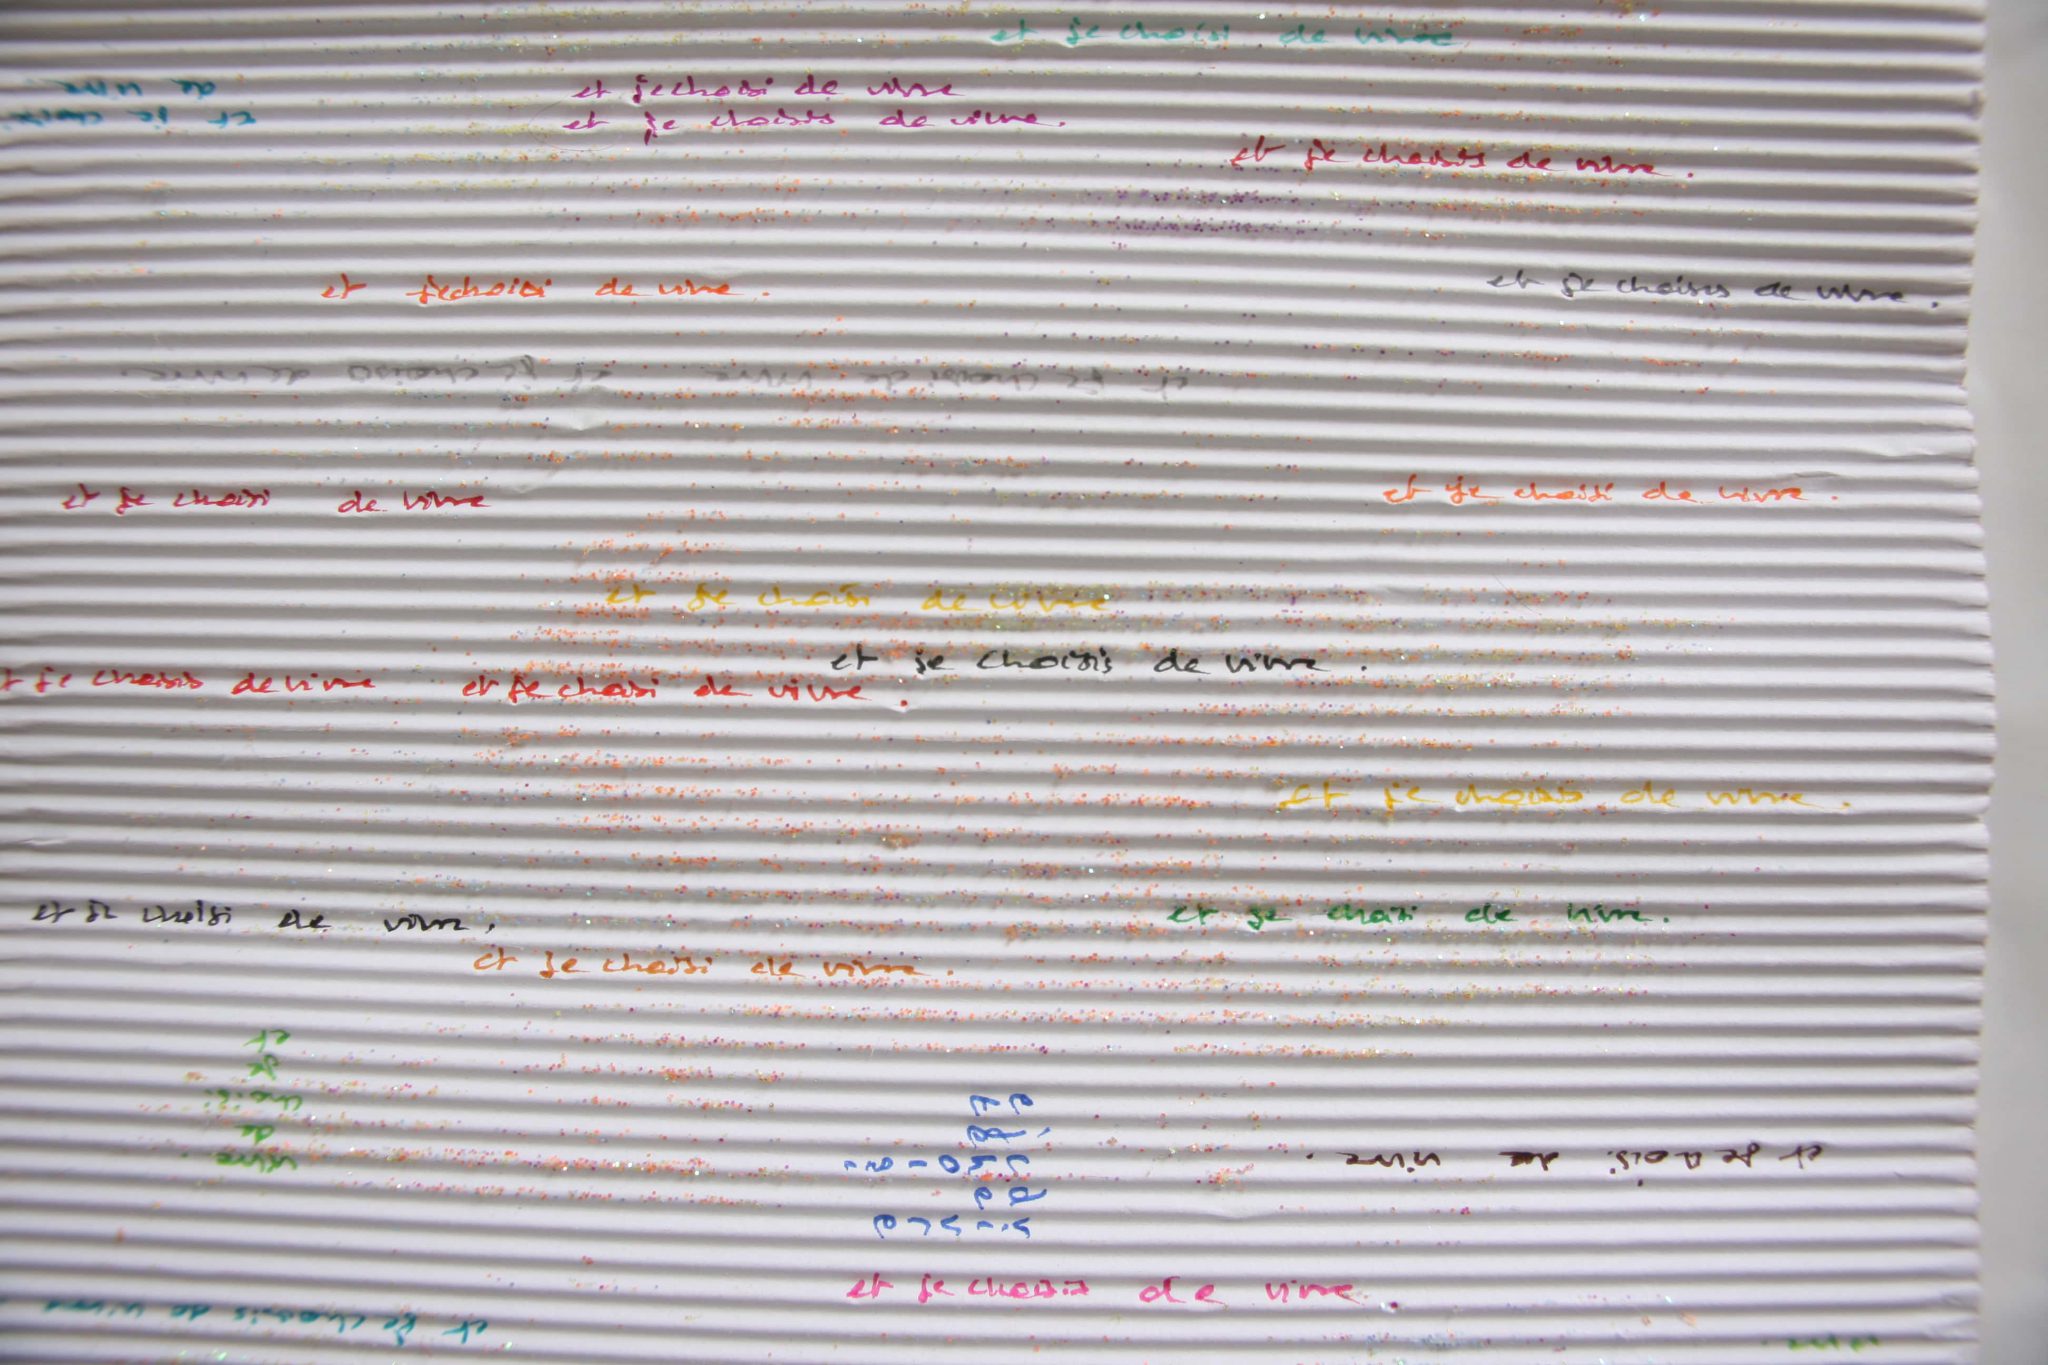 et je choisi de vivre
et je choisi de vivre
et je choisis de vivre.
et je choisi
de vivre
et je choisis de vivre.
et je choisi de vivre.
et je choisis de vivre.
et je choisi de vivre et je choisis de vivre.
et je choisi de vivre
et je choisi de vivre.
et je choisi de vivre
et je choisis de vivre.
et je choisis de vivre
et je choisi de vivre.
et je choisis de vivre.
et je choisi de vivre.
et je choisi de vivre.
et je choisi de vivre.
et
je
choisi
de
vivre.
et
de
vivre
et je de vivre.
et je choisis de vivre.
et je choisis de vivre
vivre.